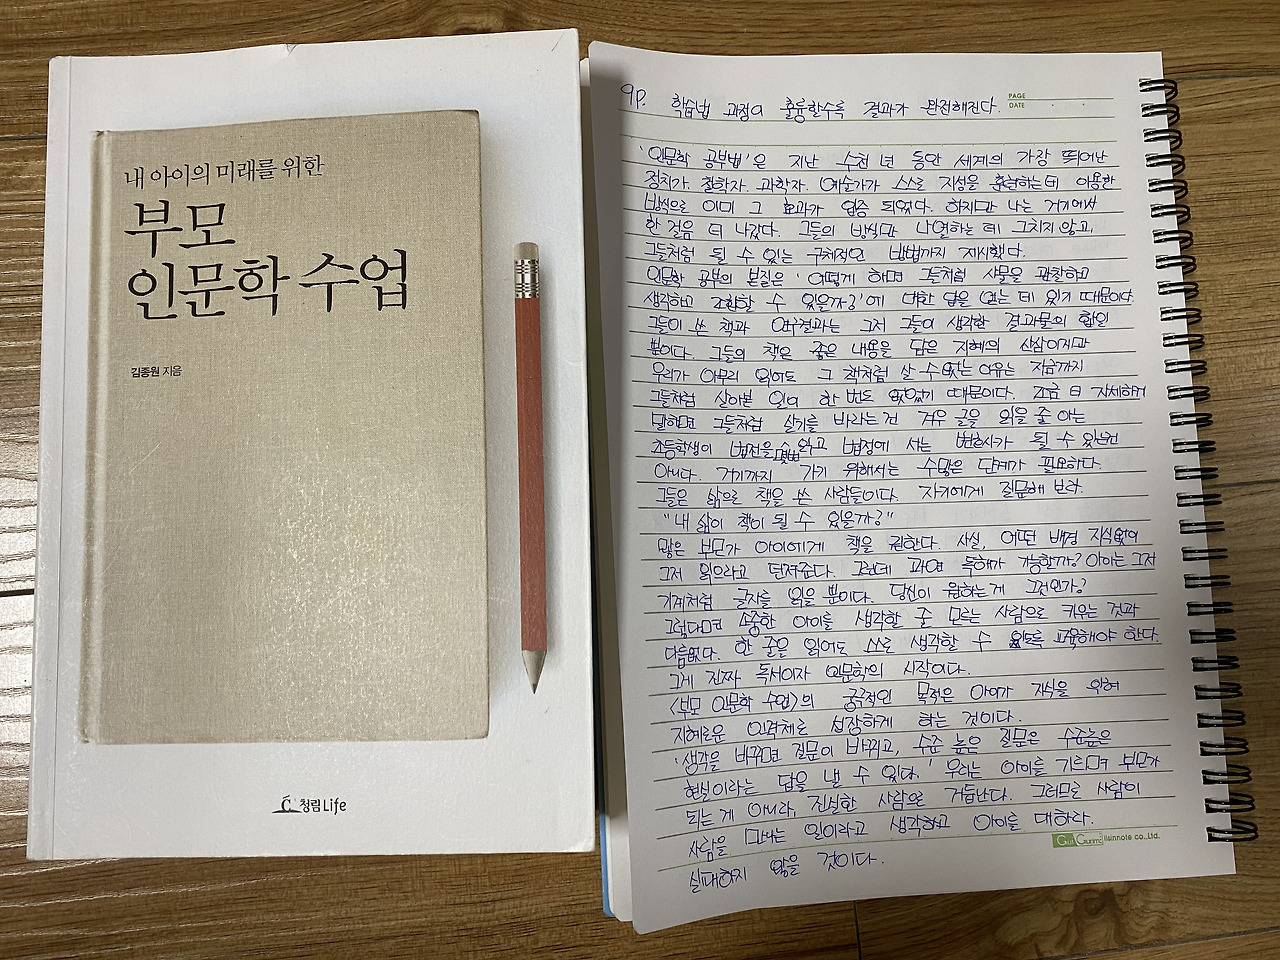 내 아이의 미래를 위한
부모
인문학 수업
김종원 지음
청림Life
PAGE
DATE
9P. 학습법 과정이 훌륭할수록 결과가 완전해진다.
'인문학 공부법'은 지난 수천 년 동안 세계의 가장 뛰어난
정치가. 철학자. 과학자. 예술가가 스스로 지성을 훈련하는데 이용한
방식으로 이미 그 효과가 입증 되었다. 하지만 나는 거기에서
한 걸음 더 나갔다. 그들의 방식만 나열하는 데 그치지 않고,
그들처럼 될 수 있는 구체적인 방법까지 제시했다.
인문학 공부의 본질은 '어떻게 하면 그들처럼 사물을 관찰하고
생각하고 조합할 수 있을까?'에 대한 답을 얻는 데 있기 때문이다.
그들이 쓴 책과 연구결과는 그저 그들이 생각한 결과물의 합일
뿐이다. 그들의 책은 좋은 내용을 담은 지혜의 산삼이지만
우리가 아무리 읽어도 그 책처럼 살 수 없는 이유는 지금까지
그들처럼 살아본 일이 한 번도 없었기 때문이다. 조금 더 자세하게
말하면 그들처럼 살기를 바라는 건 겨우 글을 읽을 줄 아는
초등학생이 법전을 술술 외우고 법정에 서는 변호사가 될 수 있는건
아니다. 거기까지 가기 위해서는 수많은 단계가 필요하다.
그들은 삶으로 책을 쓴 사람들이다. 자기에게 질문해 보라.
"내 삶이 책이 될 수 있을까?"
많은 부모가 아이에게 책을 권한다. 사실, 어떤 배경 지식없이
그저 읽으라고 던져준다. 그런데 과연 독해가 가능한까? 아이는 그저
기계처럼 글자를 읽을 뿐이다. 당신이 원하는게 그것인가?
그렇다면 소중한 아이를 생각할 줄 모르는 사람으로 키우는 것과
다름없다. 한 줄을 읽어도 스스로 생각할 수 있도록 교육해야 한다.
그게 진짜 독서이자 인문학의 시작이다.
<부모 인문학 수업>의 궁극적인 목적은 아이가 지식을 위해
지혜로운 인격체로 성장하게 하는 것이다.
'생각을 바꾸면 질문이 바뀌고, 수준 높은 질문은 수준높은
현실이라는 답을 낼 수 있다.' 우리는 아이를 기르며 부모가
되는 게 아니라, 진실한 사람으로 거듭난다. 그러므로 사람이
사람을 만나는 일이라고 생각하고 아이를 대하라.
실패하지 않을 것이다.
ilsinnote co.,Ltd.